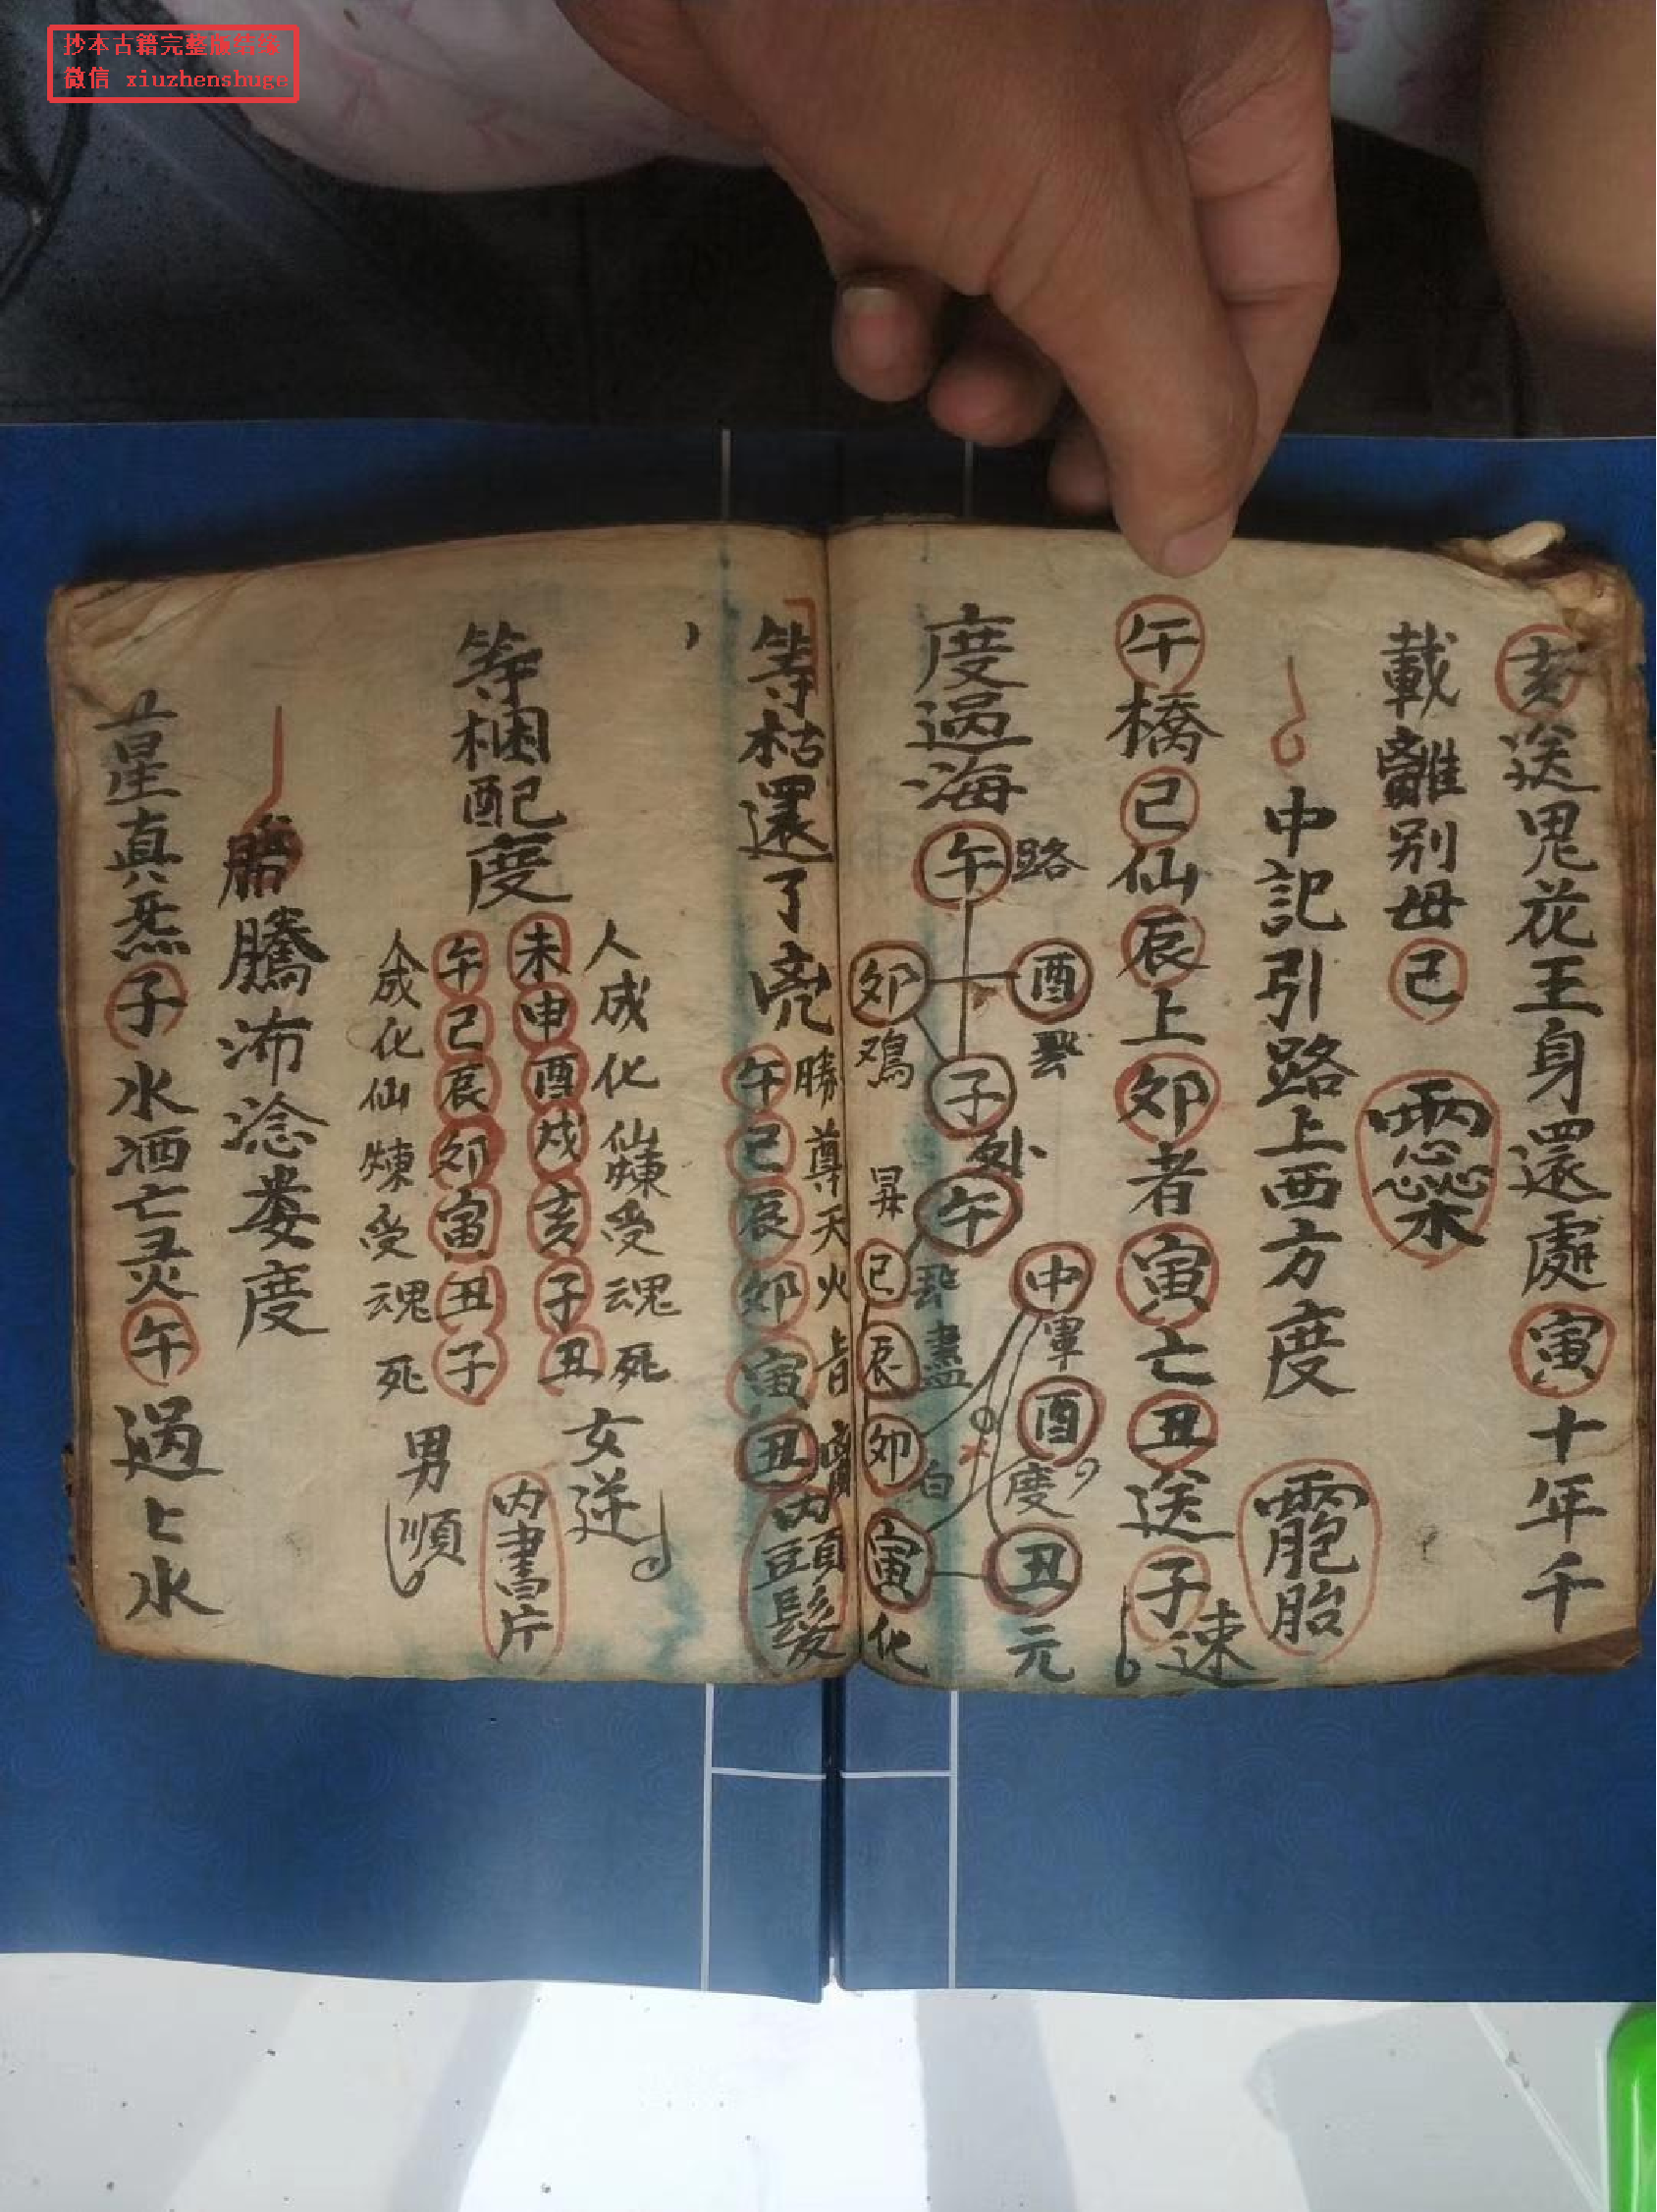 抄本古籍完整版结缘
微信 xiuzhenshuge
亥送鬼花王身還處寅十年千
載離别母己
中記引路上西方度
胎
午橋己仙辰上卯者寅亡丑送子速
度過海
午路
卯 酉
鳮
子
处
昇
午
己 中
軍
辰 盡
酉
卯 白 度
寅 丑
化 元
等枯還了完
午己辰卯寅丑
勝尊天火
内頭髮
等梱配度
人成化仙煉受魂死
未申酉戌亥子丑
女逆
午己辰卯寅丑子
人成化仙煉受魂死
男順
内書片
騰沛淰婁度
星真炁子水洒亡灵午過上水